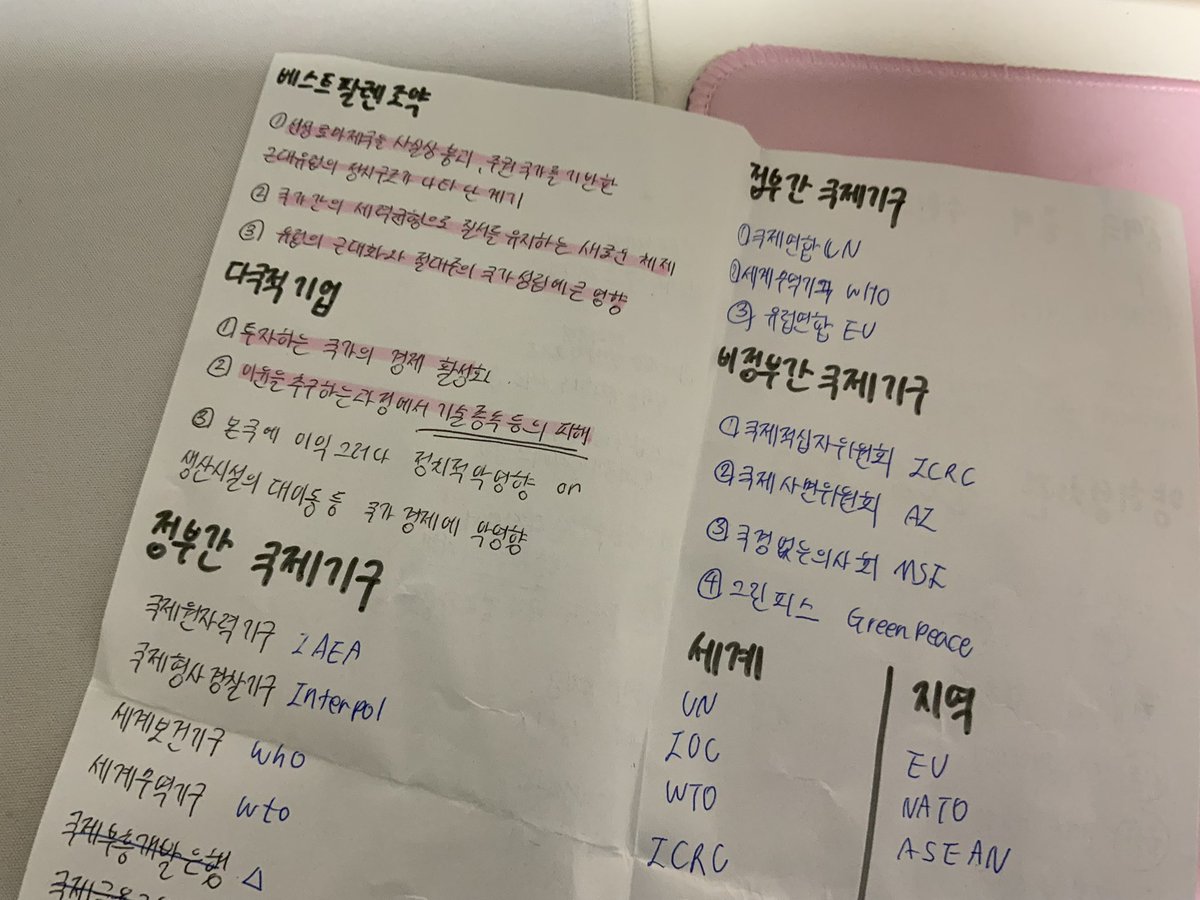 베스트팔렌 조약
① 신성로마제국을 사실상 붕괴, 주권 국가를 기반한
근대유럽의 정치구조가 나타난 계기
② 국가간의 세력균형으로 질서를 유지하는 새로운 체제
③ 유럽의 근대화와 절대주의 국가 성립에 큰 영향
다국적 기업
① 투자하는 국가의 경제 활성화.
② 이윤을 추구하는 과정에서 기술종속 등의 피해
③ 본국에 이익 그러나 정치적 악영향 or
생산시설의 대이동 등 국가 경제에 악영향
정부간 국제기구
국제원자력기구 IAEA
국제형사경찰기구 Interpol
세계보건기구 who
세계무역기구 wto
국제부흥개발은행 △
정부간 국제기구
① 국제연합 UN
② 세계무역기구 WTO
③ 유럽연합 EU
비정부간 국제기구
① 국제적십자위원회 ICRC
② 국제사면위원회 AI
③ 국경없는의사회 MSF
④ 그린피스 GreenPeace
세계
UN
IOC
WTO
ICRC
지역
EU
NATO
ASEAN